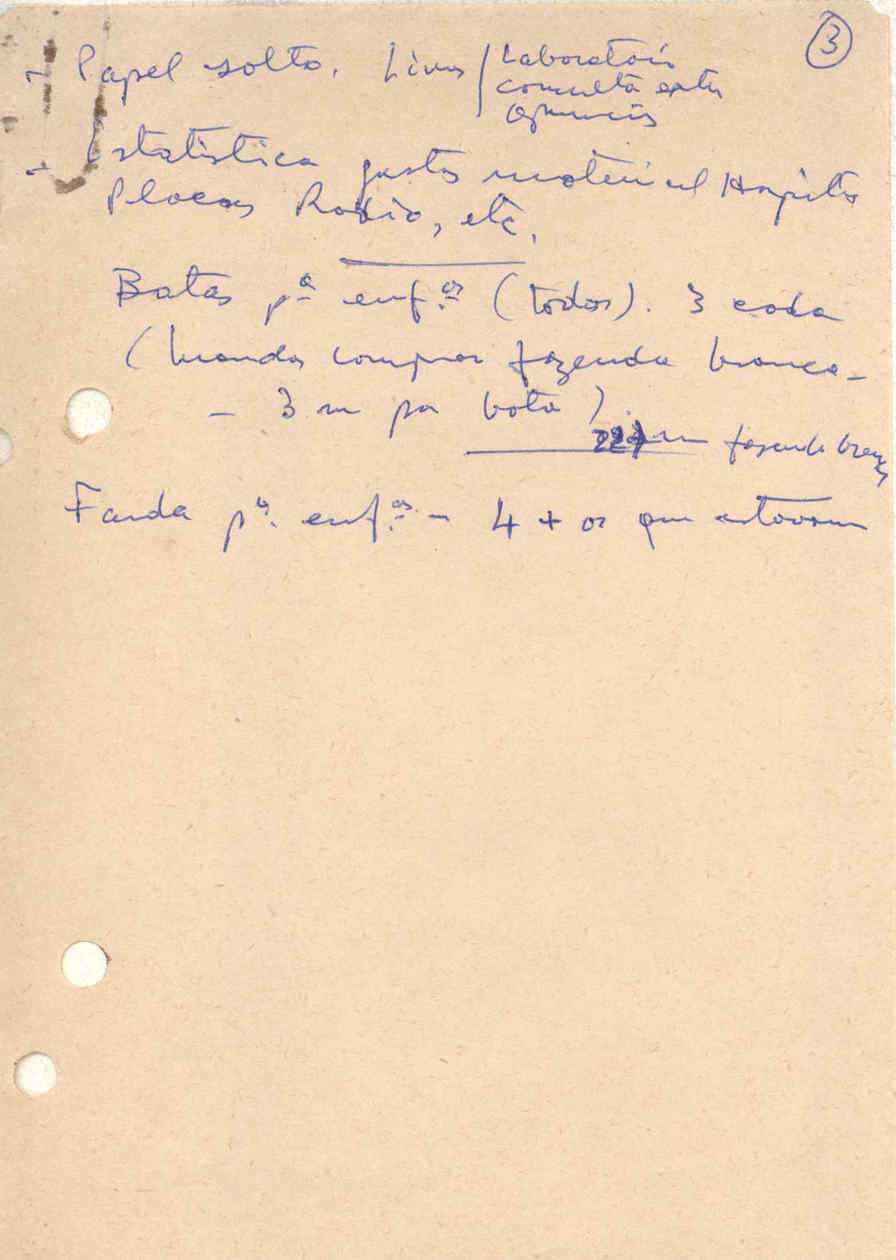 ③
- Papel solto. Livros / Laboratório
consulta externa
farmácia
- Estatística gastos material Hospital
Placas Radio, etc.
Batas pª enfºs (todos). 3 cada
(mandar comprar fazenda branca -
- 3 m por bata)
m fazenda branca
Farda pª. enfºs - 4 + os que estavam